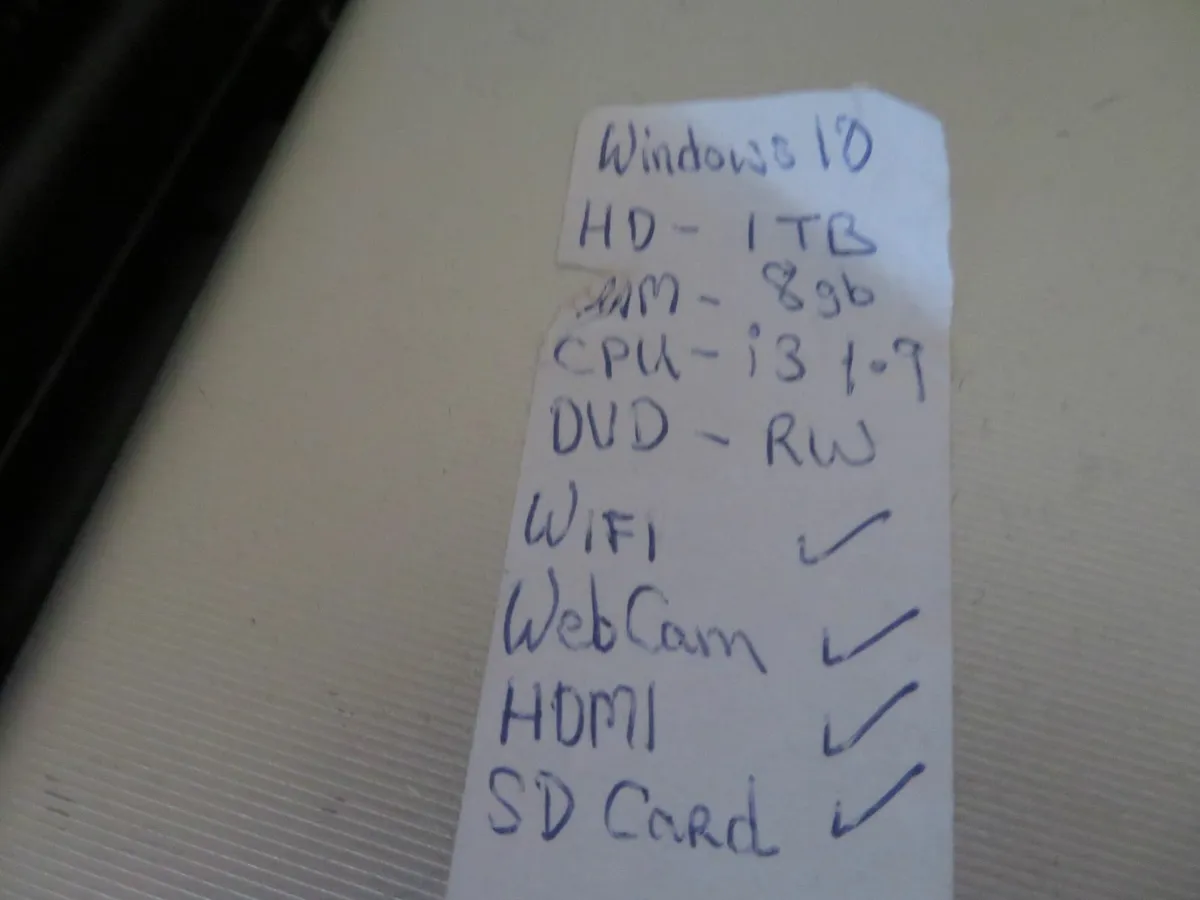 Windows 10
HD - 1 TB
- 8gb
CPU - i3 1.9
DVD - RW
WIFI ✓
WebCam ✓
HDMI ✓
SD CaRd ✓